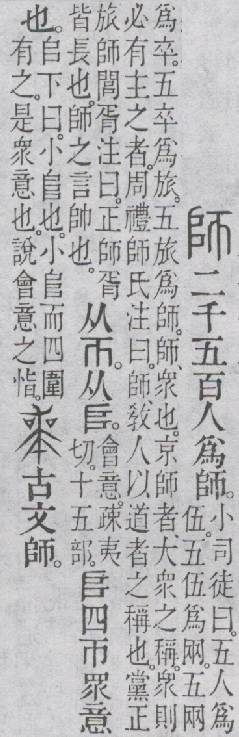 師二千五百人爲師。
小司徒曰。五人爲
伍。五伍爲㒳。五㒳
爲卒。五卒爲旅。五旅爲師。師衆也。京師者、大衆之稱。衆則
必有主之者。周禮師氏注曰。師敎人以道者之稱也。黨正
旅師閭胥注曰。正師胥
皆長也。師之言帥也。
从帀。从𠂤。
會意。疎夷
切。十五部。
𠂤四帀眾意
也。
𠂤下曰。小𠂤也。小𠂤而四圍
有之。是衆意也。說會意之恉。
古文師。